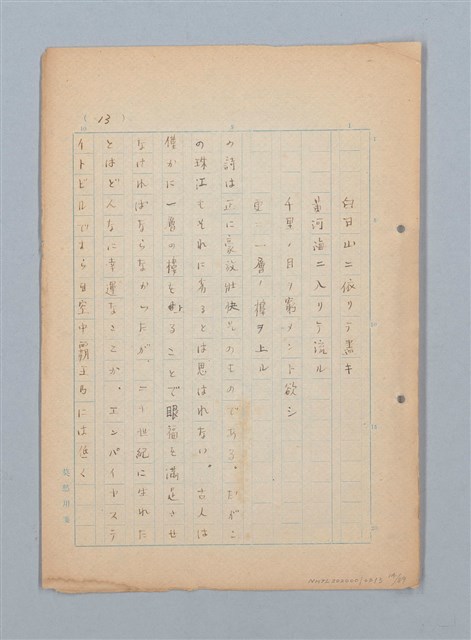 (13)
白日山ニ依リテ盡キ
黄河海ニ入リテ流ル
千里ノ目ヲ窮メント欲シ
更ニ一層ノ樓ヲ上ル
の詩は正に豪放壯快そのものである。だがこ
の珠江もそれに劣るとは思はれない。古人は
僅かに一層の樓を ることで眼福を満足させ
なければならなかつたが、二十世紀に生れた
ことはどんなに幸運なことか、エンパイヤステ
イトビルですら 空中覇王 には遠く